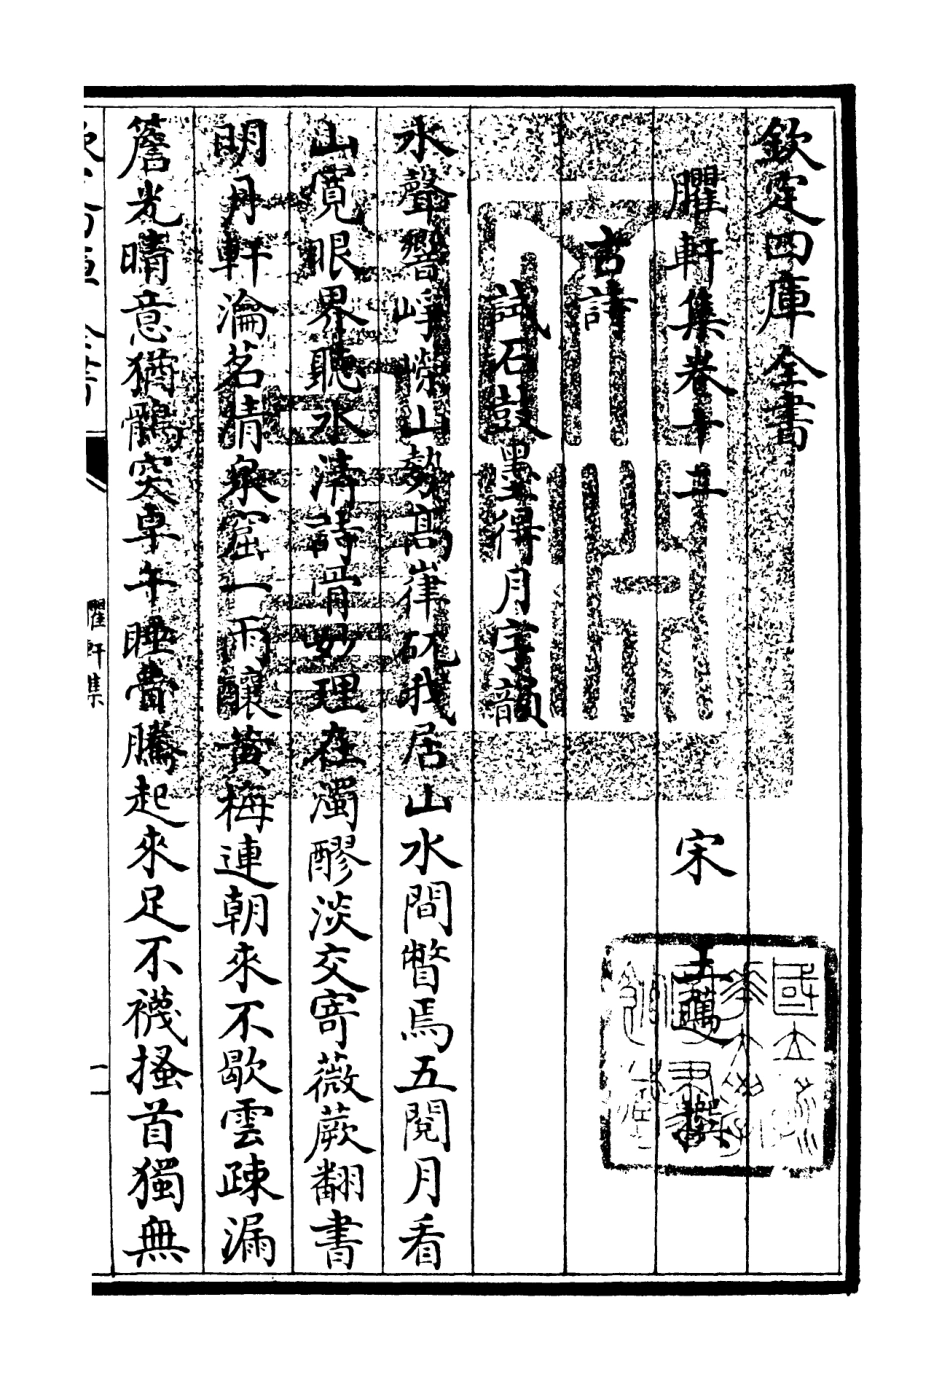 欽定四庫全書
臞軒集卷十二
宋 王邁 撰
古詩
試石鼓墨得月字韻
水聲響崢嶸山勢髙嵂矹我居山水間瞥焉五閱月看
山寛眼界聽水清詩骨妙理在濁醪淡交寄薇蕨翻書
明月軒瀹茗清泉窟一雨釀黄梅連朝來不歇雲疎漏
簷光晴意猶鶻突卓午睡瞢騰起來足不襪搔首獨無
臞軒集
一